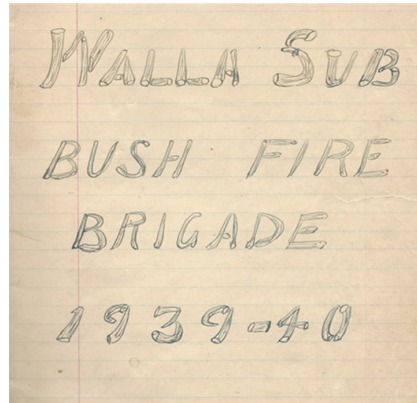 WALLA SUB
BUSH FIRE
BRIGADE
1939-40